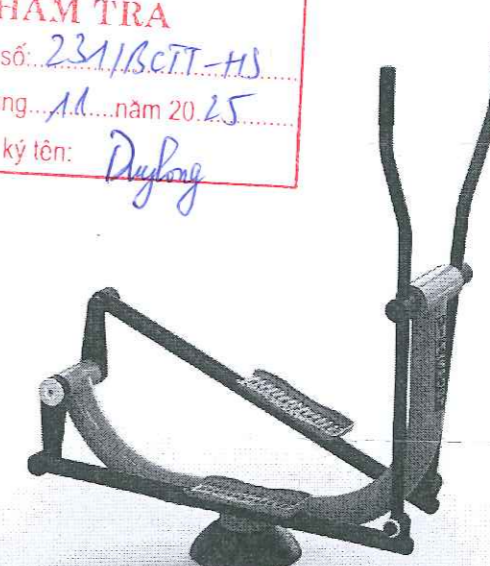 HẨM TRA
số: 231/BCTT-HS
ng....11....năm 20.25
ký tên: Duylong